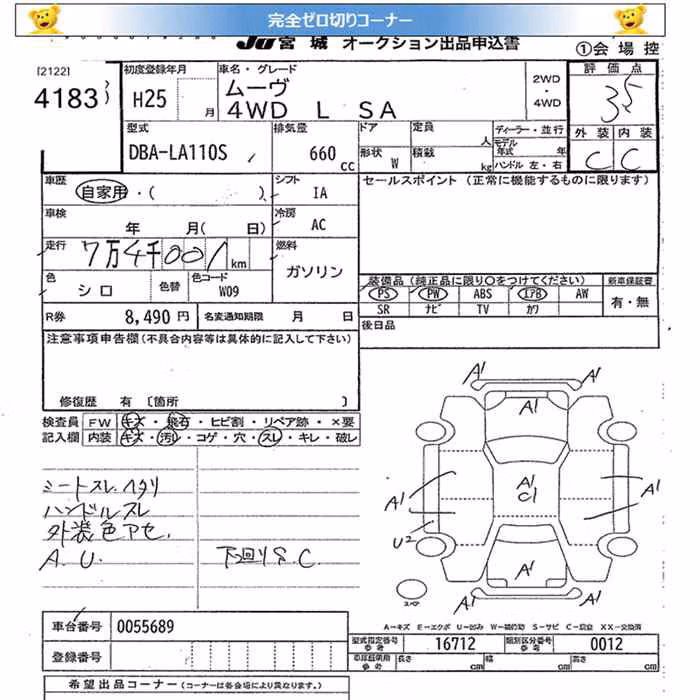 完全ゼロ切りコーナー
JU 宮 城 オークション出品申込書
①会 場 控
[2122]
4183
初度登録年月
H25 月
車名・グレード
ムーヴ
4WD L SA
2WD
・
4WD
評 価 点
3.5
外 装 内 装
C C
型式
DBA-LA110S
排気量
660 cc
ドア
形状 W
定員 人
積載 kg
ディーラー・並行
モデル年式 年
ハンドル 左・右
車歴
自家用・( )
シフト
IA
セールスポイント (正常に機能するものに限ります)
車検
年 月( 日)
冷房
AC
走行
7万4千001km
燃料
ガソリン
色
シロ
色替
色コード
W09
装備品 (純正品に限り○をつけてください)
PS PW ABS エアB AW
SR ナビ TV カワ
新車保証書
有・無
R券 8,490 円
名変通知期限 月 日
後日品
注意事項申告欄(不具合内容等は具体的に記入して下さい)
修復歴 有 〔箇所 〕
検査員
記入欄
FW キズ・飛石・ヒビ割・リペア跡・×要
内装 キズ・汚レ・コゲ・穴・スレ・キレ・破レ
シートスレ、ヘタリ
ハンドルスレ
外装色アセ、
A.U. 下回りS.C
A1 A1
A1
A1
C1
A1 A1
U2
A1
A1 A1
スペア
A-キズ E-エクボ U-凹み W-補修跡 S-サビ C-腐食 XX-交換済
車台番号 0055689
登録番号
型式指定番号 16712 類別区分番号 0012
長さ cm 幅 cm 高さ cm
希望出品コーナー (コーナーは各会場により異なります。)